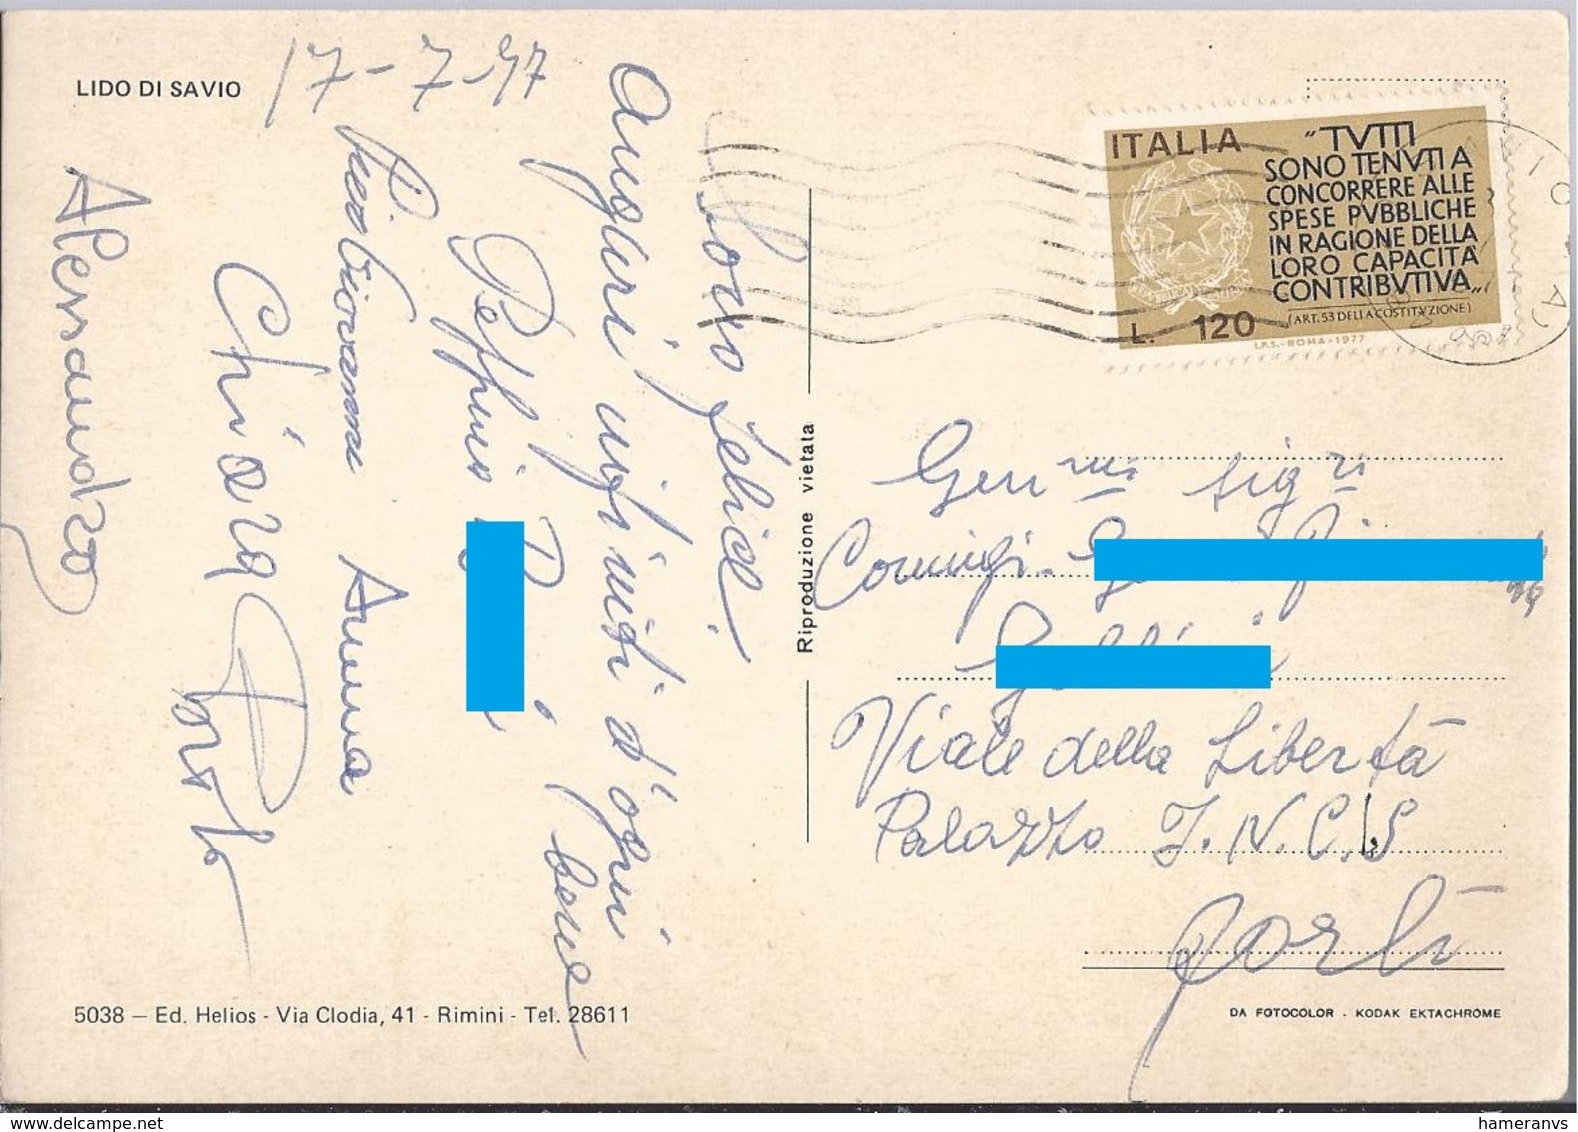 LIDO DI SAVIO
17-7-77
Sono felice!
Auguri infiniti d'ogni bene
Peppino
Piergiovanni Anna
Chiara
Alessandro
ITALIA
"TVTTI
SONO TENVTI A
CONCORRERE ALLE
SPESE PVBBLICHE
IN RAGIONE DELLA
LORO CAPACITÀ
CONTRIBVTIVA„
(ART. 53 DELLA COSTITVZIONE)
L. 120
I.P.S.-ROMA-1977
Riproduzione vietata
Gen.mi sig.ri
Coniugi
Viale della Libertà
Palazzo I.N.C.I.S
Forlì
5038 – Ed. Helios - Via Clodia, 41 - Rimini - Tel. 28611
DA FOTOCOLOR - KODAK EKTACHROME
www.delcampe.net
hameranvs